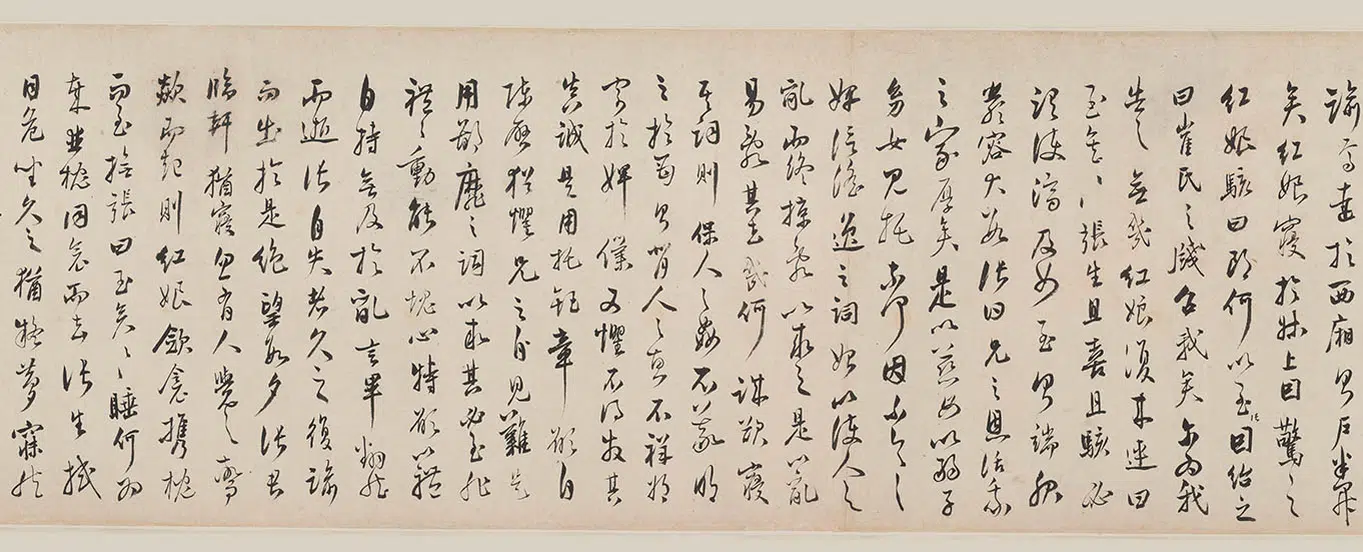 踰焉達於西廂則戶半開
矣紅娘寢於牀上因驚之
紅娘駭曰郎何以至張因紿之
曰崔氏之牋召我矣爾為我
告之無幾紅娘復來連曰
至矣〻張生且喜且駭必
謂獲濟及女至則端服
嚴容大數張曰兄之恩活我
之家厚矣是以慈母以弱子
幼女見託奈何因不令之
婢致淫逸之詞始以護人之
亂而終掠亂以求之是以亂
易亂其去幾何誠欲寢
其詞則保人之姦不義明
之於母則背人之惠不祥將
寄於婢僕又懼不得發其
真誠是用託短章願自
陳啟猶懼兄之自見難是
用鄙靡之詞以求其必至非
禮〻動能不愧心特願以禮
自持無及於亂言畢翻然
而逝張自失者久之復踰
而出於是絕望數夕張君
臨軒獨寢忽有人覺之驚
欻而起則紅娘斂衾攜枕
而至撫張曰至矣〻睡何為
哉並枕同衾而去張生拭
目危坐久之猶疑夢寐然